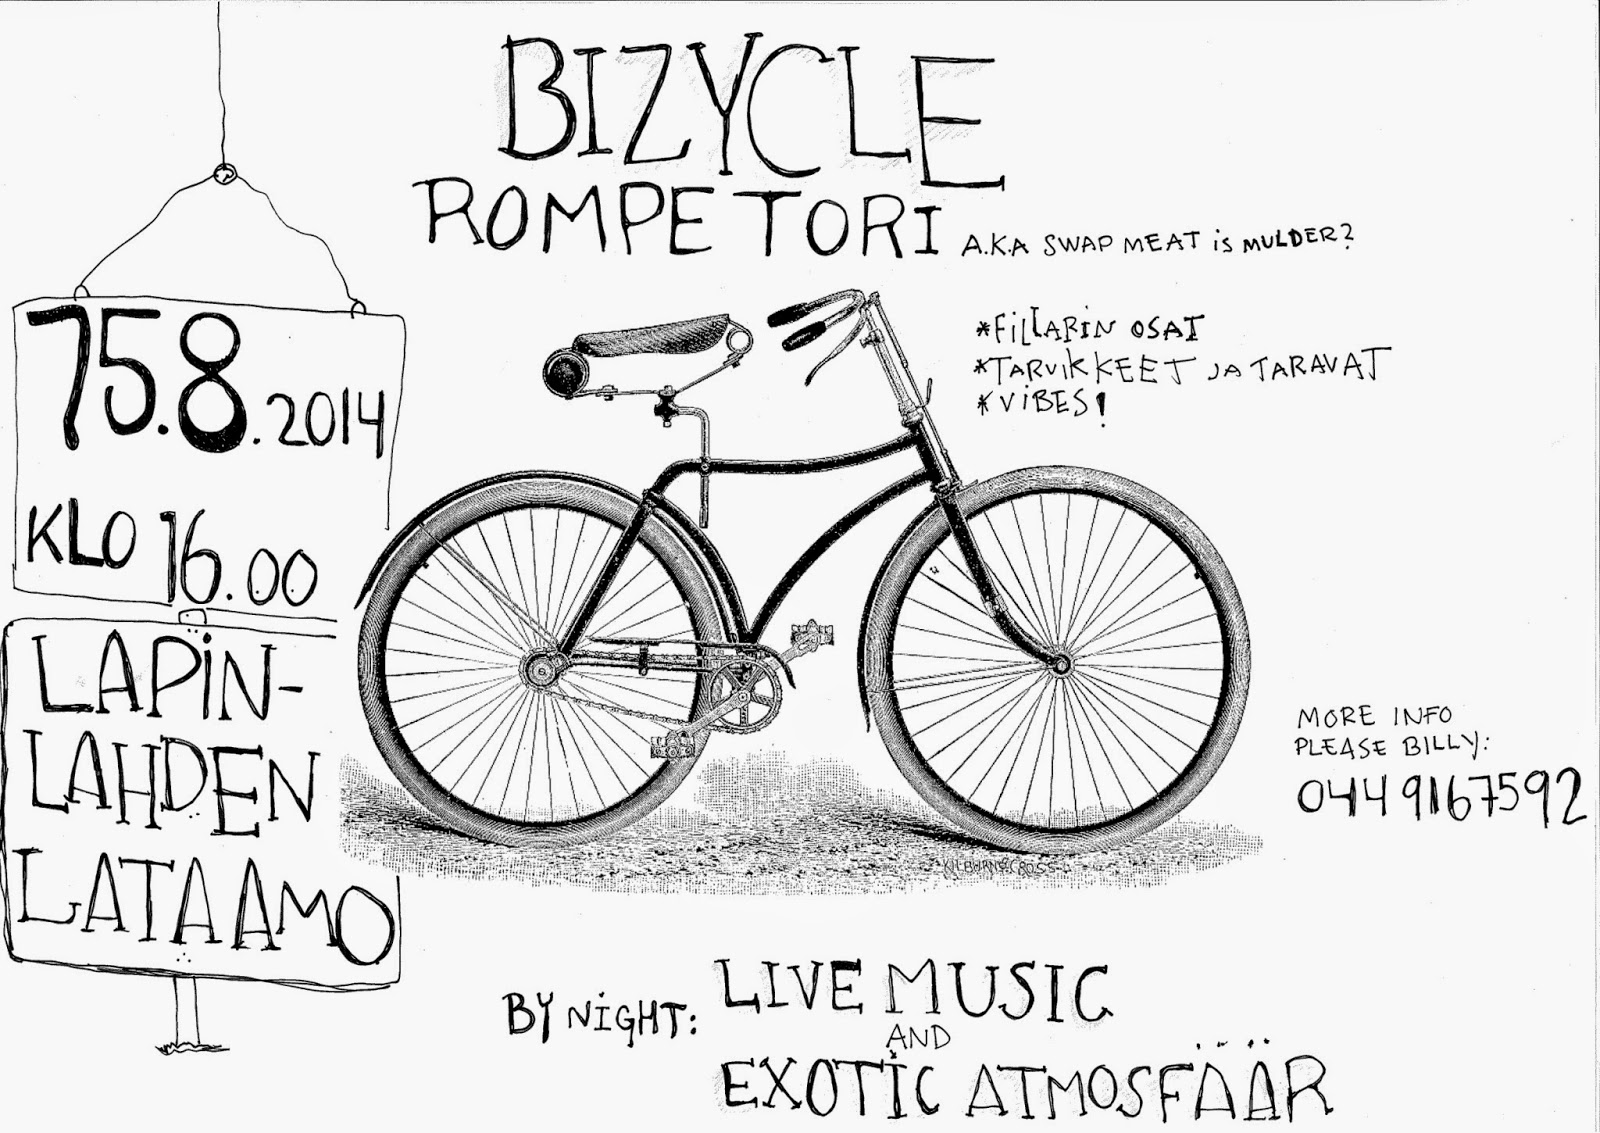 BIZYCLE
ROMPETORI A.K.A SWAP MEAT iS MULDER?
15.8.2014
KLO 16.00
LAPiN-
LAHDEN
LATAAMO
*FiLLARiN OSAT
*TARViKKEET JA TARAVAT
*ViBES!
MORE INFO
PLEASE BILLY:
044 9167592
KILBURN&CROSS
BY NiGHT: LIVE MUSIC
AND
EXOTiC ATMOSFÄÄR